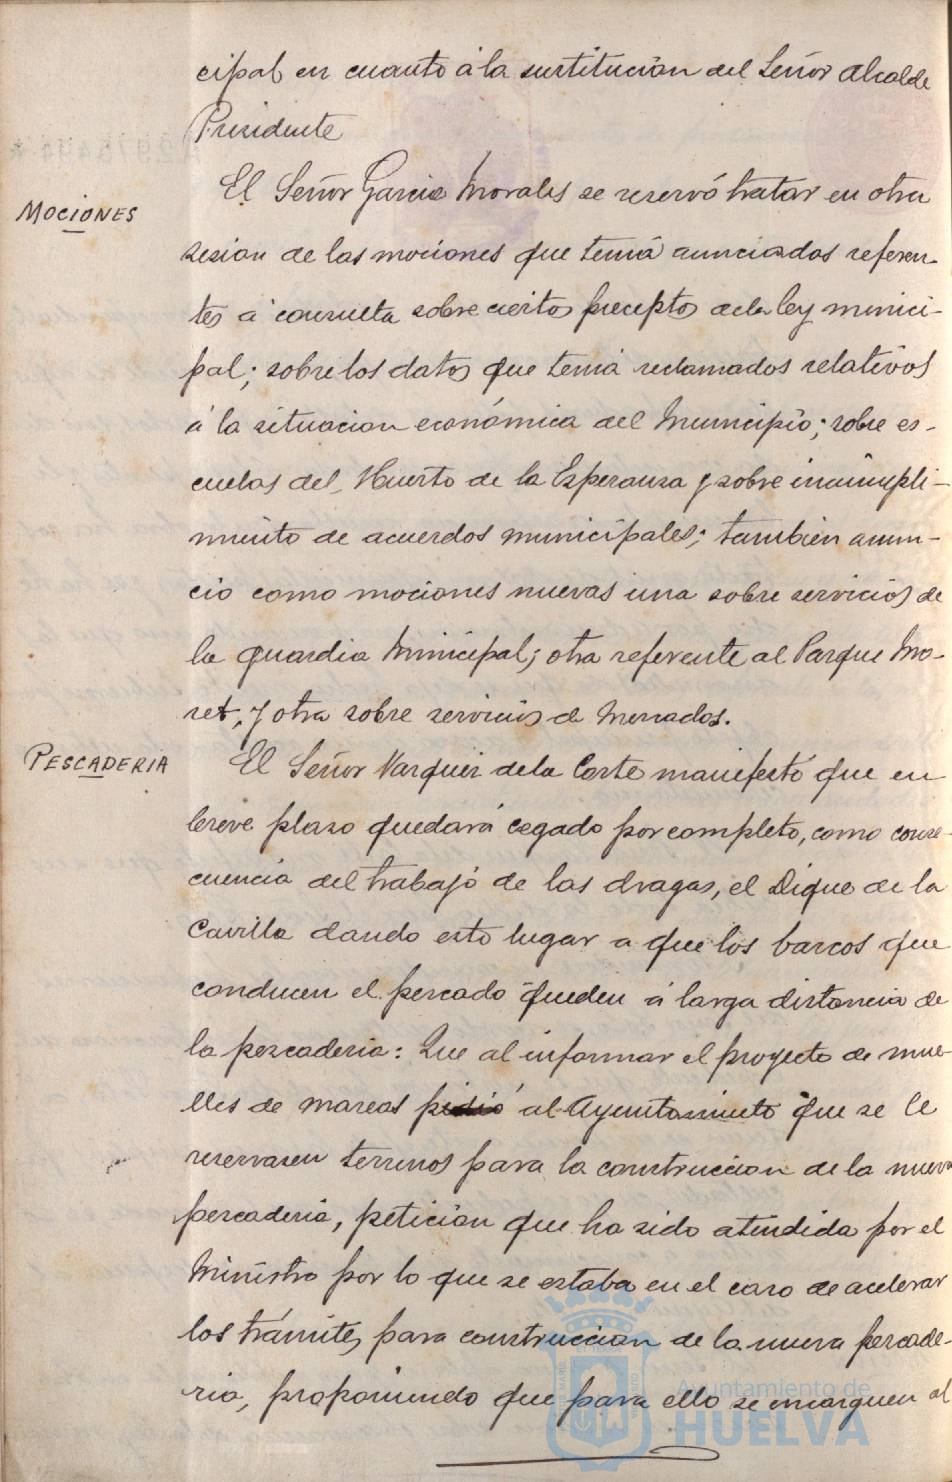 cipal en cuanto á la sustitución del Señor Alcalde
Presidente
MOCIONES
El Señor Garcia Morales se reservó tratar en otra
sesion de las mociones que tenia anunciadas referen-
tes á consulta sobre ciertos preceptos de la ley munici-
pal; sobre los datos que tenia reclamados relativos
á la situacion económica del Municipio; sobre es-
cuelas del Huerto de la Esperanza y sobre incumpli-
miento de acuerdos municipales; tambien anun-
cio como mociones nuevas una sobre servicios de
la guardia Municipal; otra referente al Parque Mo-
ret, y otra sobre servicios de Mercados.
PESCADERIA
El Señor Vazquez de la Corte manifestó que en
breve plazo quedará cegado por completo, como conse-
cuencia del trabajo de las dragas, el Dique de la
Cavilla dando esto lugar a que los barcos que
conducen el pescado queden á larga distancia de
la pescaderia: Que al informar el proyecto de mue-
lles de mareas pidió al Ayuntamiento que se le
reservasen terrenos para la construccion de la nueva
pescaderia, peticion que ha sido atendida por el
Ministro por lo que se estaba en el caso de acelerar
los trámites para construccion de la nueva pescade-
ria, proponiendo que para ello se encarguen al
Ayuntamiento de
HUELVA